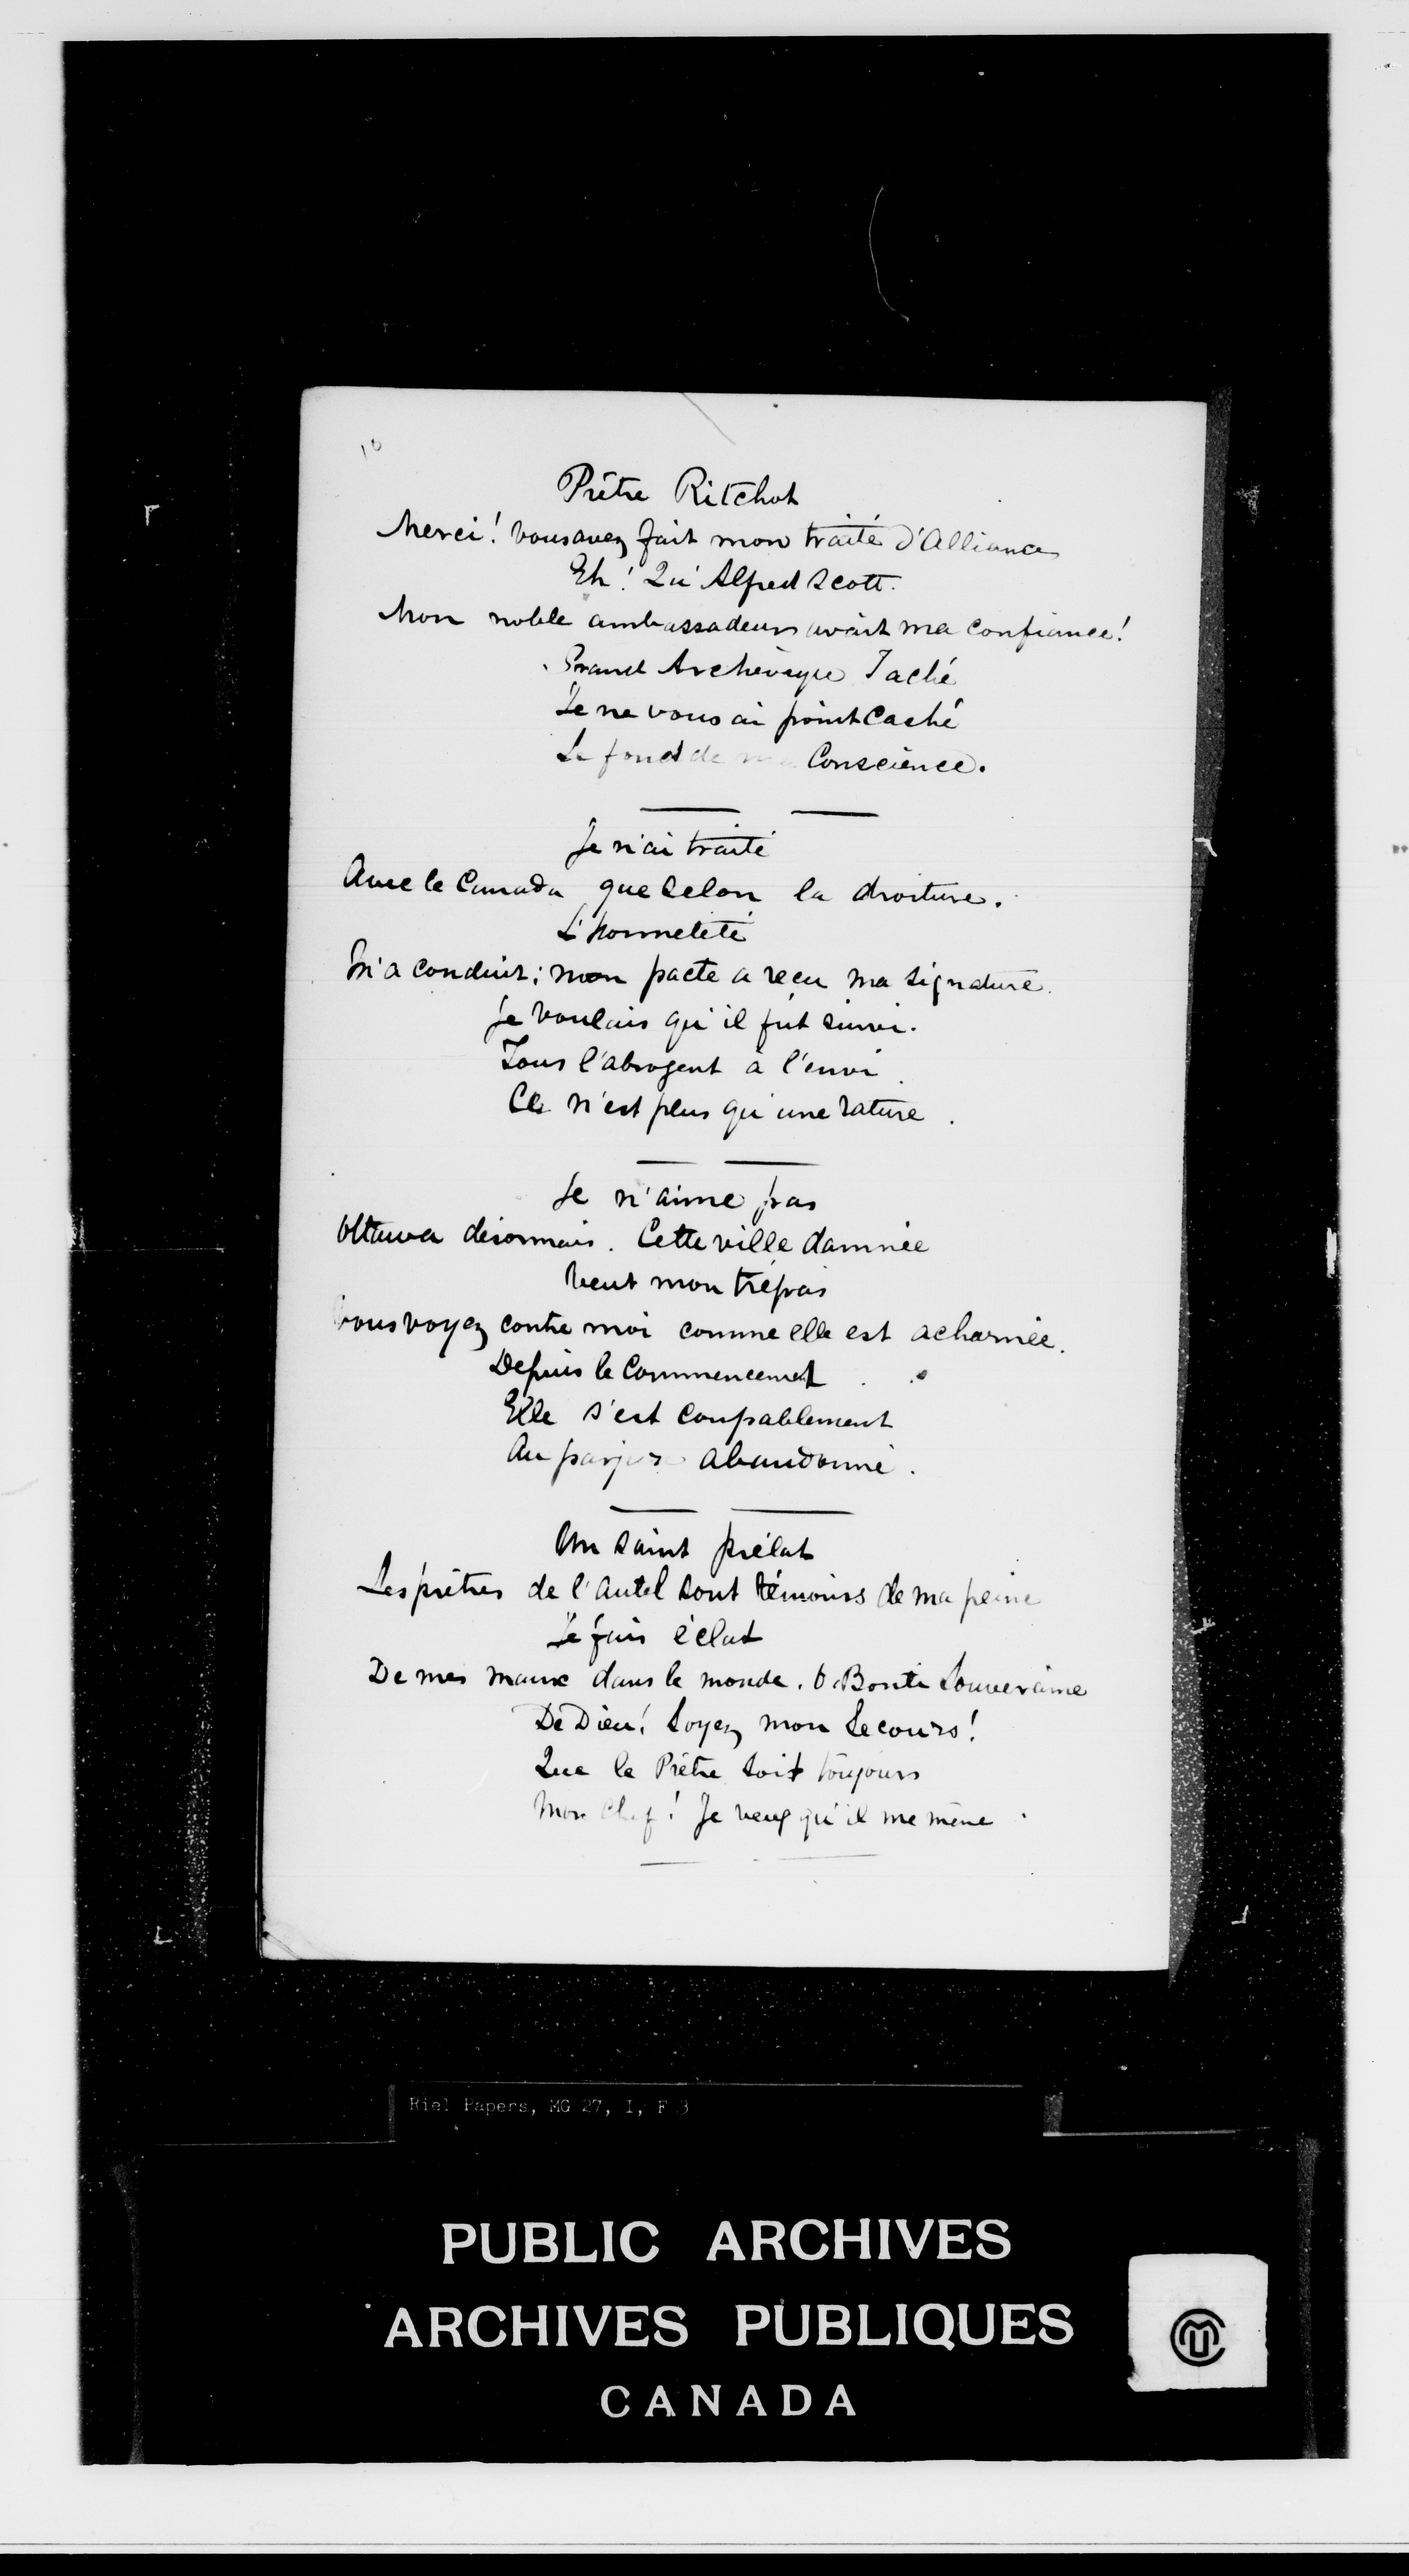 10
Prêtre Ritchot
Merci! vous avez fait mon traité d'Alliance
Eh! Qu'Alfred Scott.
Mon noble ambassadeur avait ma confiance!
Grand Archevêque Taché
Je ne vous ai point caché
Le fond de ma Conscience.
Je n'ai traité
Avec le Canada que selon la droiture.
L'honnêteté
M'a conduit; mon pacte a reçu ma signature.
Je voulais qu'il fut suivi.
Tous l'abrogent à l'envi
Ce n'est plus qu'une rature.
Je n'aime pas
Ottawa désormais. Cette ville damnée
Veut mon trépas
Vous voyez contre moi comme elle est acharnée.
Depuis le Commencement
Elle s'est coupablement
Au parjure abandonné.
Un saint prélat
Les prêtres de l'autel sont témoins de ma peine
Je fais éclat
De mes maux dans le monde. O Bonté Souveraine
De Dieu! Soyez mon Secours!
Que le Prêtre soit toujours
Mon Chef! Je veux qu'il me mène.
Riel Papers, MG 27, I, F 3
PUBLIC ARCHIVES
ARCHIVES PUBLIQUES
CANADA